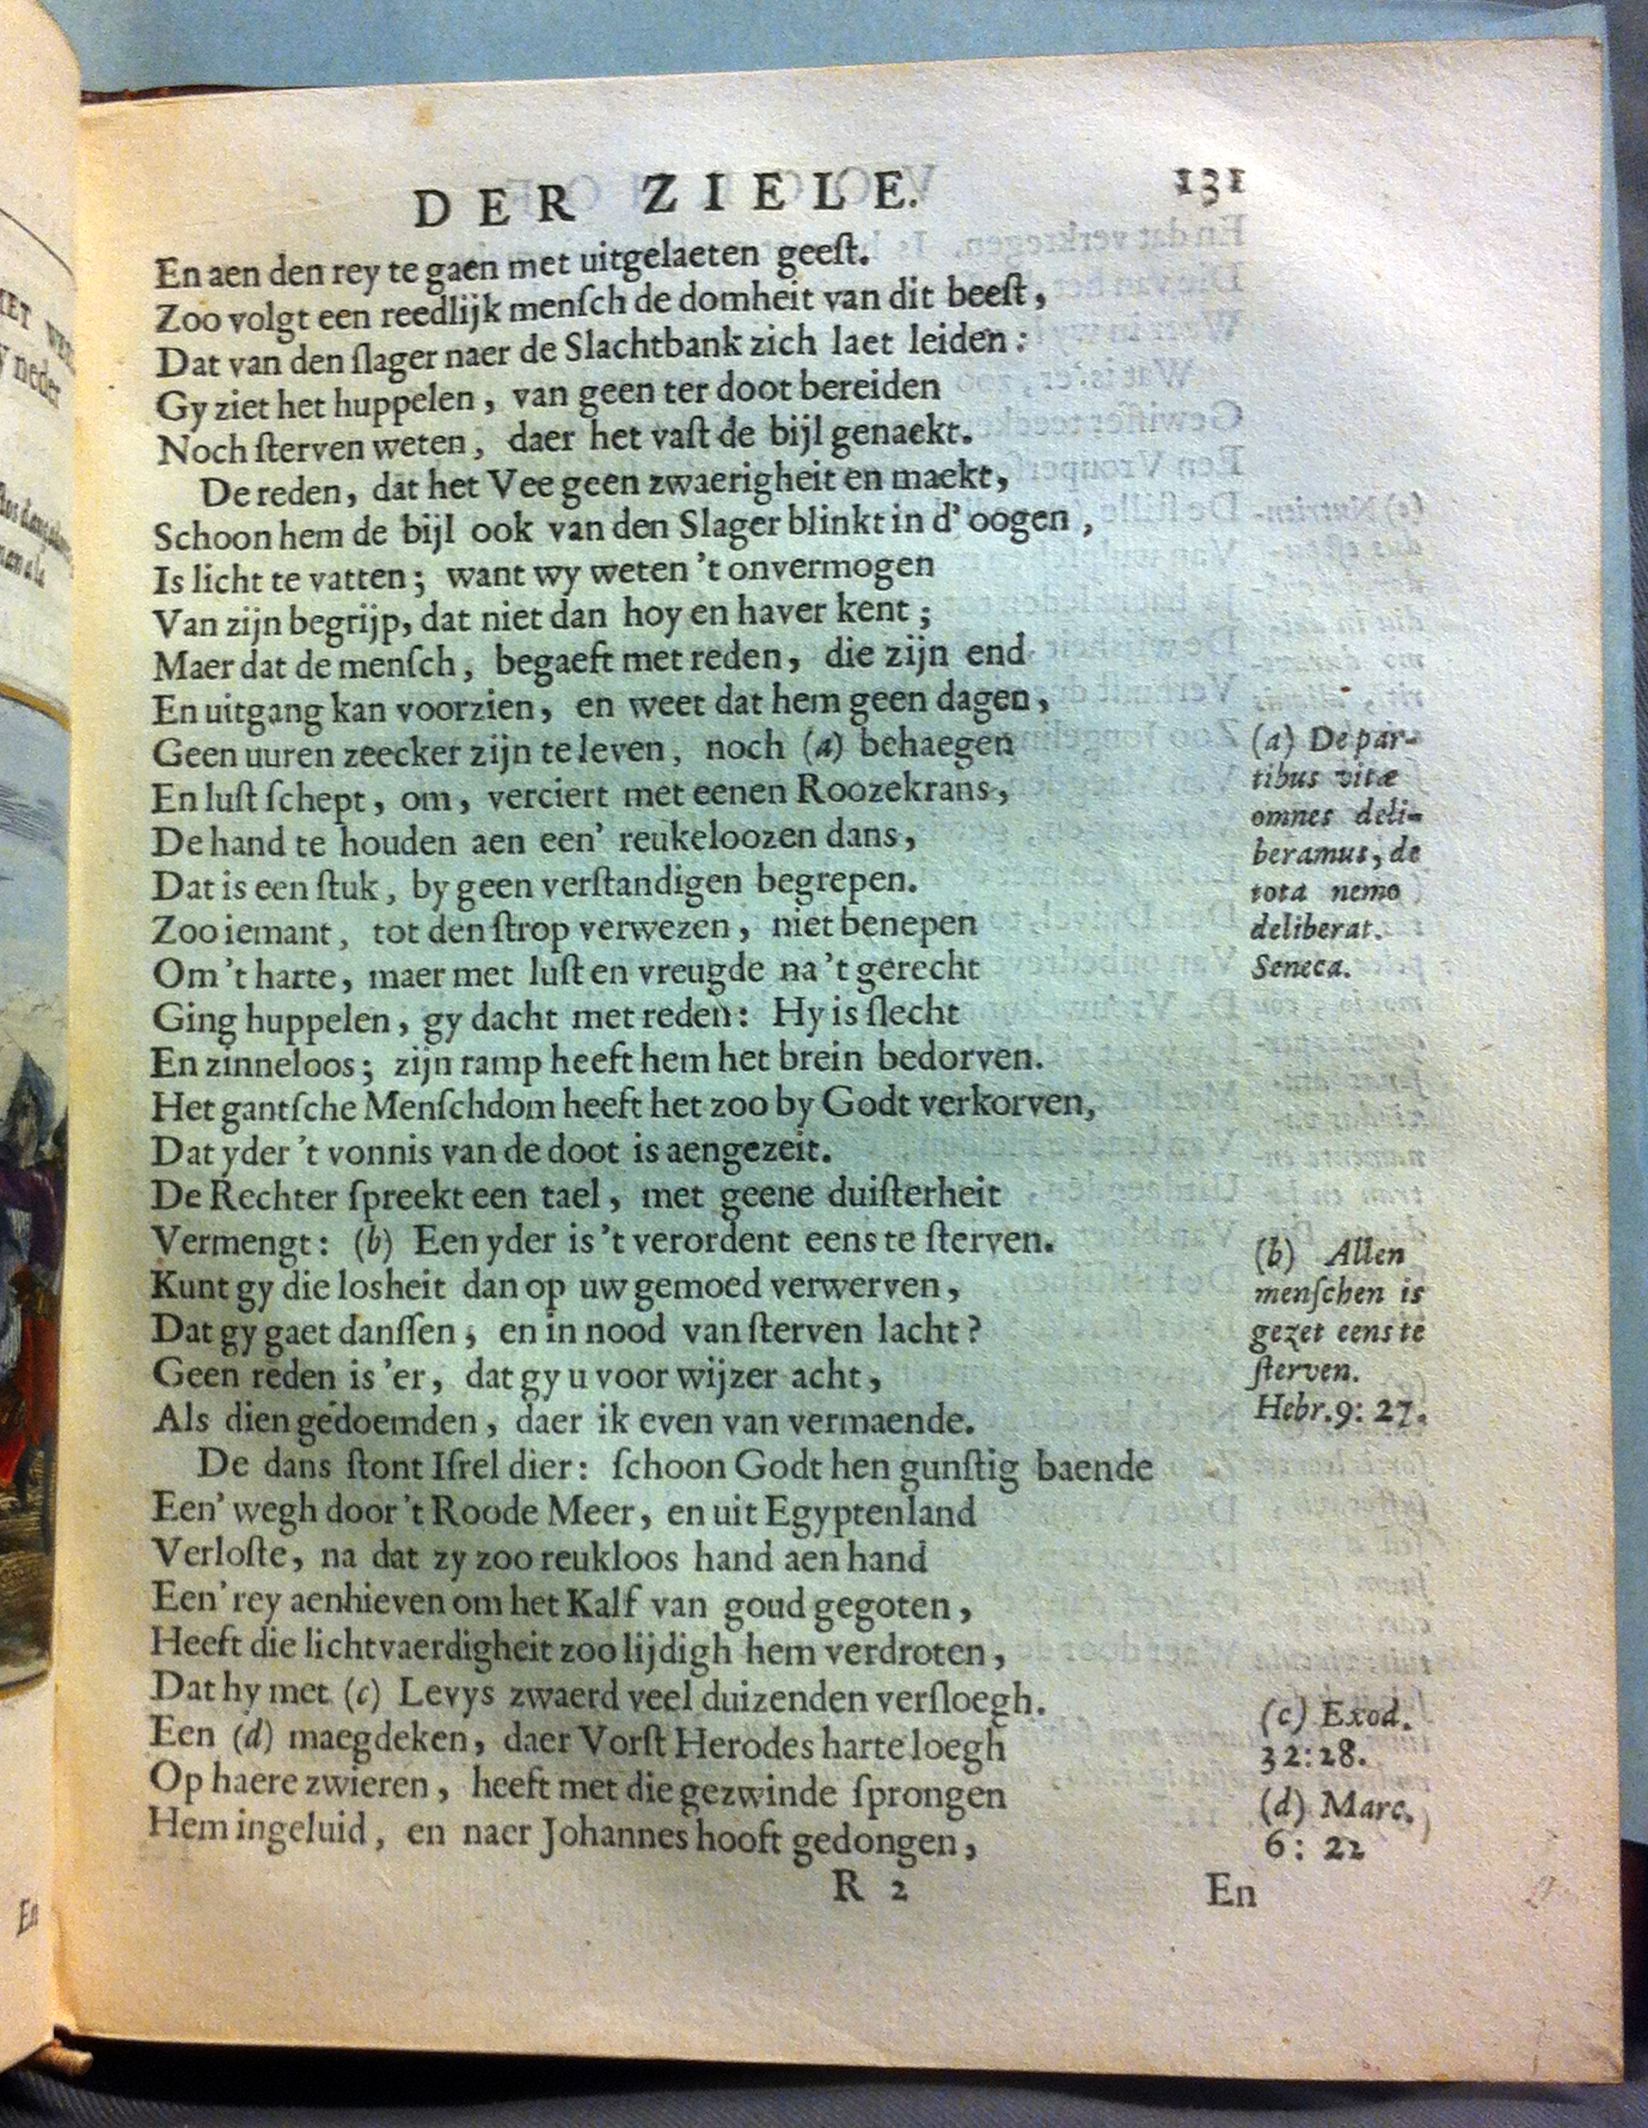 DER ZIELE. 131
En aen den rey te gaen met uitgelaeten geeſt.
Zoo volgt een reedlijk menſch de domheit van dit beeſt,
Dat van den ſlager naer de Slachtbank zich laet leiden:
Gy ziet het huppelen, van geen ter doot bereiden
Noch ſterven weten, daer het vaſt de bijl genaekt.
De reden, dat het Vee geen zwaerigheit en maekt,
Schoon hem de bijl ook van den Slager blinkt in d' oogen,
Is licht te vatten; want wy weten 't onvermogen
Van zijn begrijp, dat niet dan hoy en haver kent;
Maer dat de menſch, begaeft met reden, die zijn end
En uitgang kan voorzien, en weet dat hem geen dagen,
Geen uuren zeecker zijn te leven, noch (a) behaegen
En luſt ſchept, om, verciert met eenen Roozekrans,
De hand te houden aen een' reukeloozen dans,
Dat is een ſtuk, by geen verſtandigen begrepen.
Zoo iemant, tot den ſtrop verwezen, niet benepen
Om 't harte, maer met luſt en vreugde na 't gerecht
Ging huppelen, gy dacht met reden: Hy is ſlecht
En zinneloos; zijn ramp heeft hem het brein bedorven.
Het gantſche Menſchdom heeft het zoo by Godt verkorven,
Dat yder 't vonnis van de doot is aengezeit.
De Rechter ſpreekt een tael, met geene duiſterheit
Vermengt: (b) Een yder is 't verordent eens te ſterven.
Kunt gy die losheit dan op uw gemoed verwerven,
Dat gy gaet danſſen, en in nood van ſterven lacht?
Geen reden is 'er, dat gy u voor wijzer acht,
Als dien gedoemden, daer ik even van vermaende.
De dans ſtont Iſrel dier: ſchoon Godt hen gunſtig baende
Een' wegh door 't Roode Meer, en uit Egyptenland
Verloſte, na dat zy zoo reukloos hand aen hand
Een' rey aenhieven om het Kalf van goud gegoten,
Heeft die lichtvaerdigheit zoo lijdigh hem verdroten,
Dat hy met (c) Levys zwaerd veel duizenden verſloegh.
Een (d) maegdeken, daer Vorſt Herodes harte loegh
Op haere zwieren, heeft met die gezwinde ſprongen
Hem ingeluid, en naer Johannes hooft gedongen,
R 2 En
(a) De par-
tibus vitæ
omnes deli-
beramus, de
tota nemo
deliberat.
Seneca.
(b) Allen
menſchen is
gezet eens te
ſterven.
Hebr. 9: 27.
(c) Exod.
32:28.
(d) Marc.
6: 22